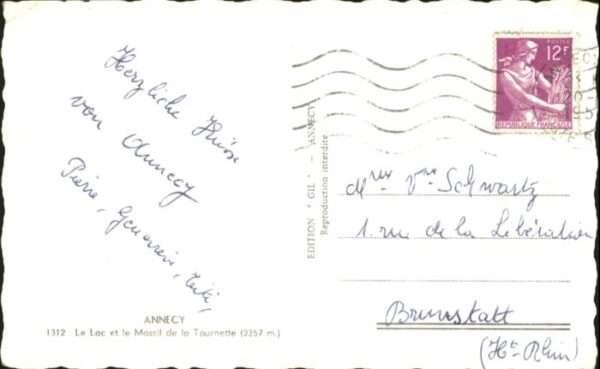 Herzliche Grüsse
von Annecy
Pierre,
ANNECY
1312 Le Lac et le Massif de la Tournette (2357 m.)
EDITION " GIL " - ANNECY
Reproduction interdite
POSTES
12F
REPUBLIQUE FRANÇAISE
Schwartz
1. rue de la Libération
Brunstatt
(Ht-Rhin)